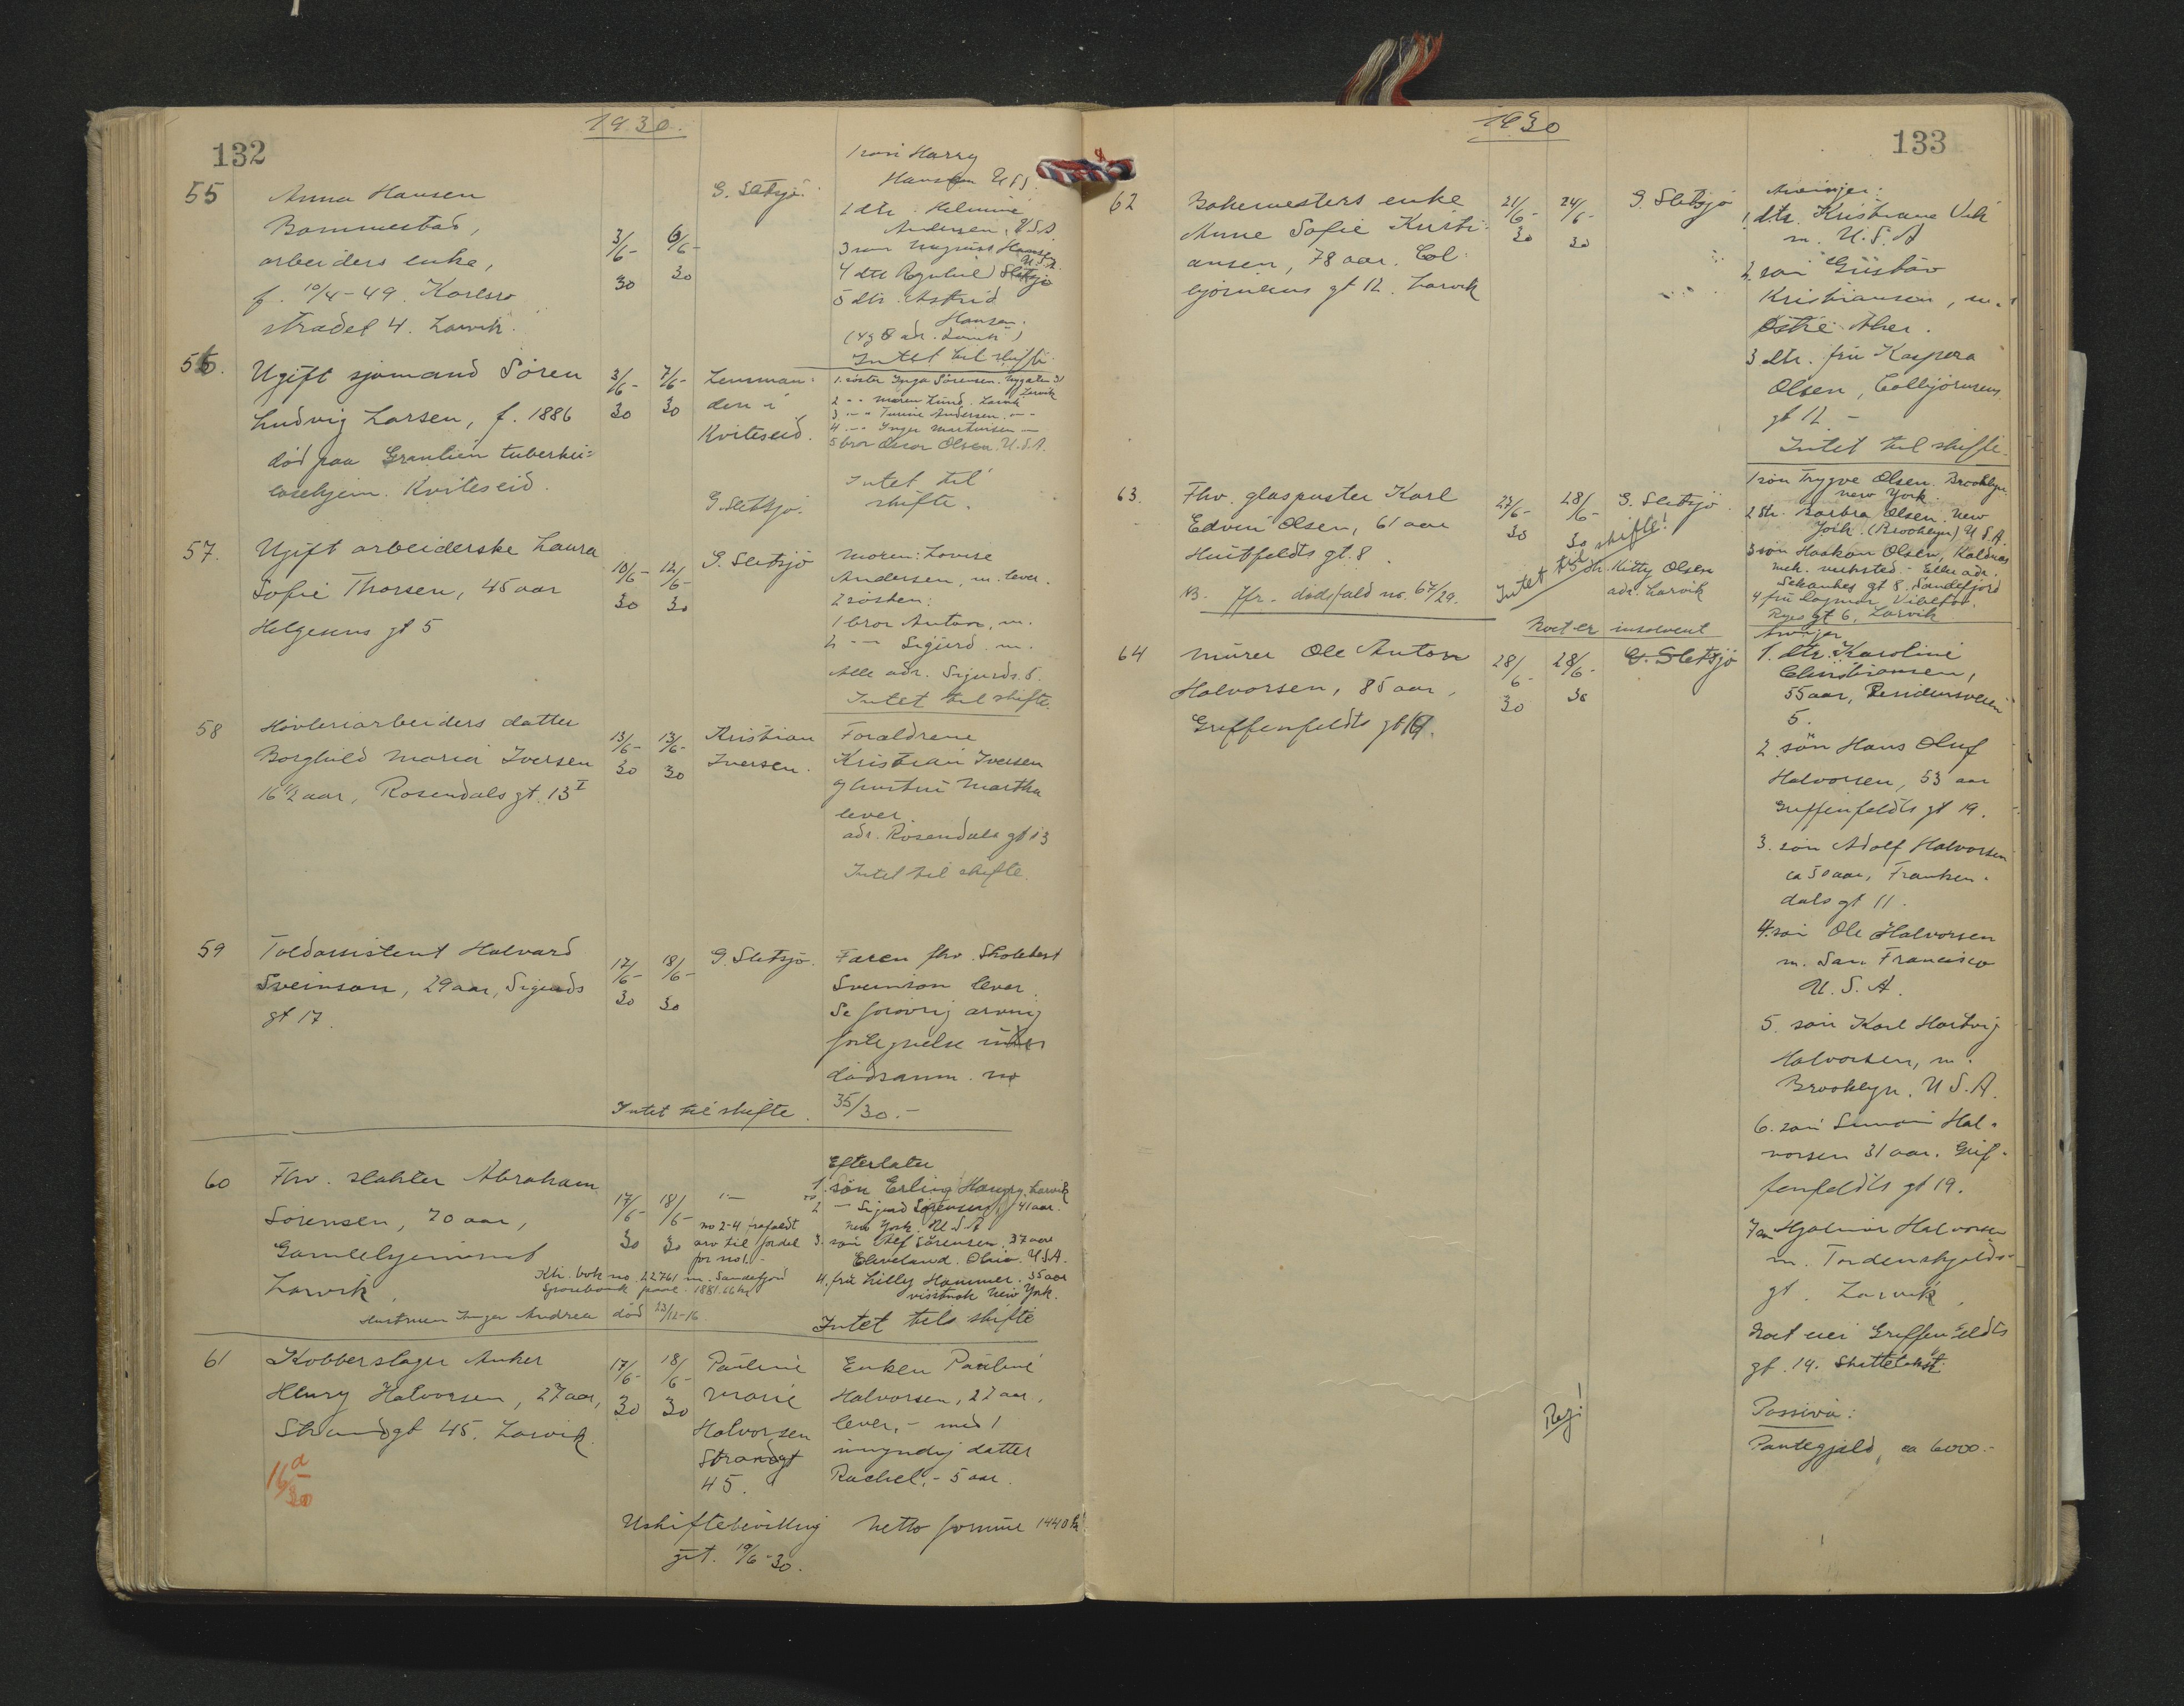 132
1930.
55
Anna Hansen
Bommestad,
arbeiders enke,
f. 10/4-49. Karlsro
strædet 4. Larvik.
3/6-30
6/6-30
G. Sletsjø.
1 søn Harry
Hansen U.S.
2 dtr. Helmine
Andersen, U.S.A
3 søn Magnus Hansen
U.S.A.
4 dtr Ragnhil Sletsjø
5 dtr. Astrid
Hansen.
(4 g 5 adr. Larvik)
Intet til skifte.
56.
Ugift sjømand Søren
Ludvig Larsen, f. 1886
død paa Granlien tuberku=
losehjem. Kviteseid.
3/6-30
7/6-30
Lensman:
den i
Kviteseid.
G. Sletsjø.
1. søster Inga Sørensen. Nygaten 31
Larvik
2 -"- Maren Lund. Larvik
3 -"- Tunine Andersen. -"-
4 -"- Inger Martinsen -"-
5 bror Oscar Olsen. U.S.A.
Intet til
skifte.
57.
Ugift arbeiderske Laura
Sofie Thorsen, 45 aar
Helgesens gt 5
10/6-30
12/6-30
G. Sletsjø
Moren: Lovise
Andersen, m. lever.
2 søsken:
1 bror Anton, m.
2 -"- Sigurd m.
Alle adr. Sigurds. 5.
Intet til skifte.
58
Høvleriarbeiders datter
Borghild Maria Iversen
16 1/2 aar, Rosendals gt. 13 I
13/6-30
13/6-30
Kristian
Iversen.
Forældrene
Kristian Iversen
g hustru Martha
lever.
adr. Rosendals gt 13
Intet til skifte.
59
Toldassistent Halvard
Sveinson, 29 aar, Sigurds
gt 17.
17/6-30
18/6-30
G. Sletsjø.
Faren fhv. Skolebest
Sveinson lever.
Se forøvrig arving
fortegnelse under
dødsanm. no
35/30.-
Intet til skifte.
60
Fhv. slakter Abraham
Sørensen, 70 aar,
Gamlehjemmet
Larvik
17/6-30
18/6-30
"-
no 2-4 frafaldt
arv til fordel
for no 1.-
Ktr. bok no. 22761 m. Sandefjord
Sparebank paal. 1881.66 kr
Hustruen Inger Andrea død 23/12-16.
Efterlater
1. søn Erling Haugg, Larvik
2 - Sigurd Sørensen, 41 aar.
New York. U.S.A
3. søn Alf Sørensen, 37 aar
Cleveland. Ohio. U.S.A.
4. fru Lilly Hammer. 35 aar
visstnok New York.
Intet tils skifte
61
Kobberslager Anker
Henry Halvorsen, 27 aar,
Strandgt 45. Larvik.
16 a/30
17/6-30
18/6-30
Pauline
Marie
Halvorsen
Strandgt
45.
Enken Pauline
Halvorsen, 27 aar,
lever,- med 1
umyndig datter
Rachel,- 5 aar.
Uskiftebevilling
git. 19/6-30.
Netto formue 1440 kr
1930
133
62
Bakermesters enke
Anne Sofie Kristi:
ansen, 78 aar. Col:
bjørnsens gt 12. Larvik
21/6-30
24/6-30
G. Sletsjø
Arvinger:
1. dtr. Kristiane Vik
m. U.S.A
2. søn Gustav
Kristiansen, m.
Østre Aker.
3 dtr. fru Kaspara
Olsen, Colbjørnsens
gt 12 -
Intet til skifte.
63.
Fhv. glaspuster Karl
Edvin Olsen, 61 aar
Huitfeldts gt. 8
NB. Jfr. dødsfald no. 67/29.
27/6-30
28/6-30
G. Sletsjø
Intet til skifte!
1 søn Trygve Olsen. Brooklyn.
New York.
2 dtr. Barbra Olsen. New
York. (Brooklyn) U.S.A.
3 søn Haakon Olsen, Kaldnæs
mek. verksted - Eller adr.
gt 8. Sandefjord
4 fru Dagmar
gt 6, Larvik
5 dtr. Kitty Olsen
adr. Larvik
Boet er insolvent
64
Murer Ole Anton
Halvorsen, 85 aar,
Greffenfeldts gt 19.
28/6-30
28/6-30
G. Sletsjø
Arvinger
1. dtr. Karoline
Christiansen,
55 aar,
5.
2. søn Hans Oluf
Halvorsen, 53 aar
Greffenfeldts gt 19.
3. søn Adolf Halvorsen
ca 50 aar, Franken-
dals gt 11.
4. søn Ole Halvorsen
m. San Francisco
U.S.A.
5. søn Karl Hartvig
Halvorsen, m.
Brooklyn. U.S.A.
6. søn Simon Hal-
vorsen 31 aar. Grif-
fenfeldts gt 19.
7 søn Hjalmar Halvorsen
m. Tordenskjolds-
gt. Larvik,
Boet eier Greffenfeldts
gt. 19. Skattetakst:
Passiva:
Pantegjæld, ca 6000.-
Reg!